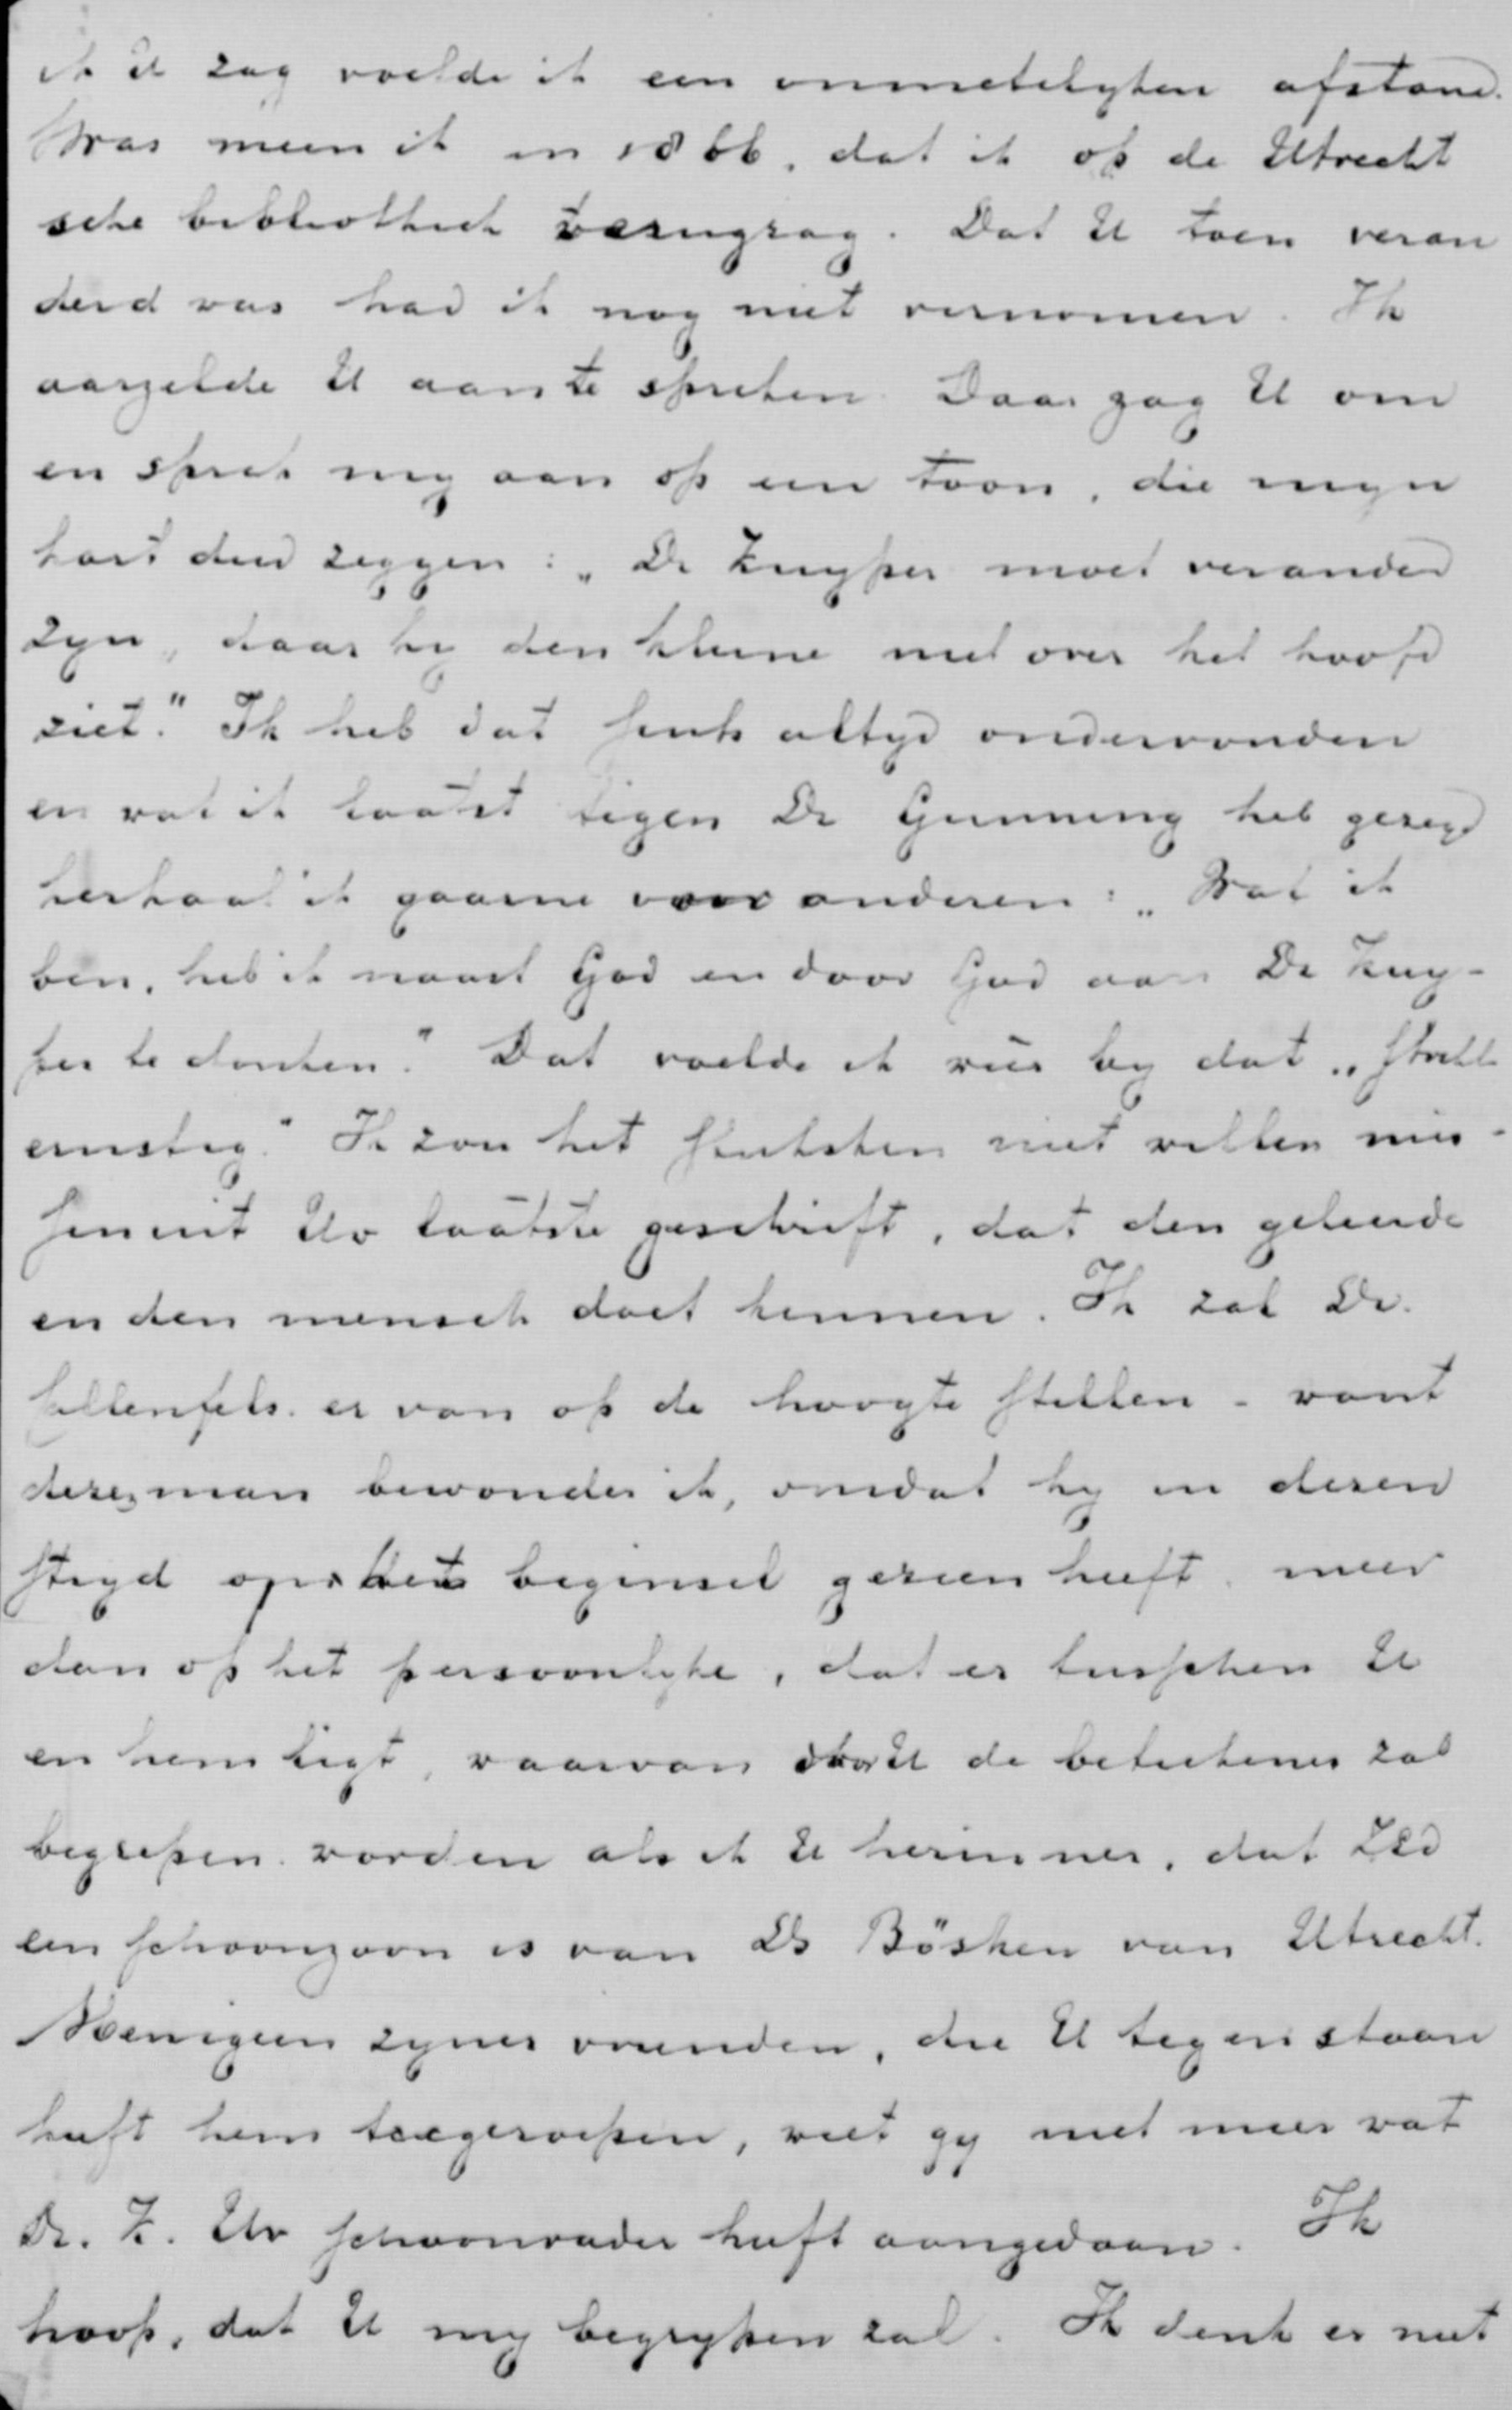 ik U zag voelde ik een onmetelyken afstand.
Was meen ik in 1866, dat ik op de Utrecht
sche bibliotheek werugzag. Dat U toen veran
derd was had ik nog niet vernomen. Ik
aarzelde U aan te spreken. Daar zag U om
en sprak my aan op een toon, die myn
hart deed zeggen: „Dr Kuyper moet veranderd
zyn, daar hy den kleine niet over het hoofd
ziet." Ik heb dat sends altyd ondervonden
en wat ik laatst tegen Dr Gunning heb gezegd
herhaal ik gaarne voor anderen: „Wat ik
ben, heb ik naast God en door God aan Dr Kuy-
per te danken." Dat voelde ik weer by dat „Strikt
ernstig." Ik zou het stuksken niet willen mis-
sen uit Uw laatste geschrift, dat den geleerde
en den mensch doet kennen. Ik zal Dr.
Callenfels er van op de hoogte stellen - want
dezen man bewonder ik, omdat hy in dezen
stryd op het beginsel gezien heeft, meer
dan op het persoonlyke, dat er tusschen U
en hem ligt, waarvan door U de beteekenis zal
begrepen worden als ik U herinner, dat ZEd
een schoonzoon is van Ds Bösken van Utrecht.
Menigeen zyner vrienden, die U tegenstaan
heeft hem toegeroepen, weet gy niet meer wat
Dr. K. Uw schoonvader heeft aangedaan. Ik
hoop, dat U my begrypen zal. Ik denk er niet